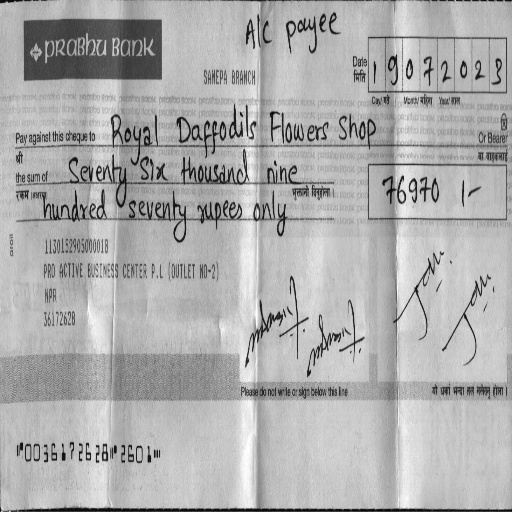 A/C payee
PRABHU BANK
SANEPA BRANCH
Date
मिति
19072023
Day/गते Month/महिना Year/साल
Pay against this cheque to Royal Daffodils Flowers Shop
Or Bearer
श्री
वा वाहकलाई
the sum of Seventy Six thousand nine
76970 /-
hundred seventy rupees only
1130152905000018
PRO ACTIVE BUSINESS CENTER P.L (OUTLET NO-2)
NPR
36172628
Please do not write or sign below this line
"0036172628" 2601"'